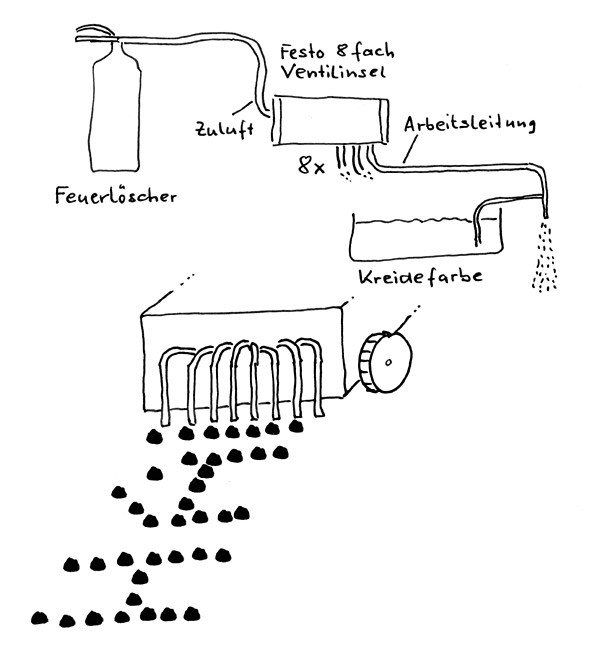 Festo 8fach
Ventilinsel
Zuluft
Arbeitsleitung
8x
Feuerlöscher
Kreidefarbe